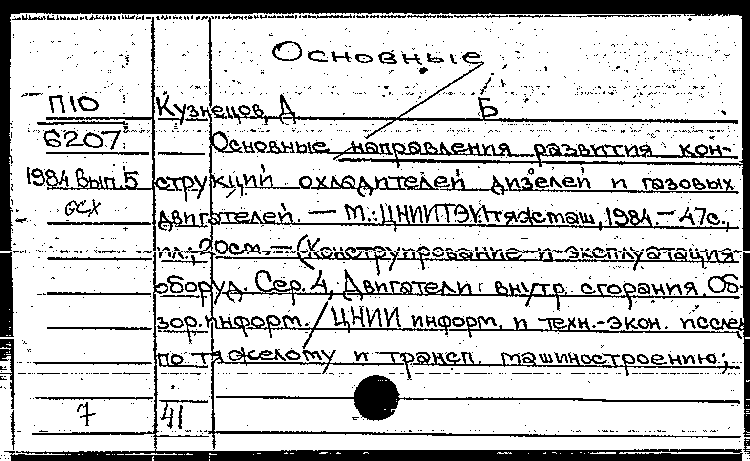 Основные
П10 Кузнецов, Д Б
6207 Основные направления развития кон-
1984, Вып. 5 струкций охладителей дизелей и газовых
ОСХ двигателей. — М.: ЦНИИТЭИтяжмаш, 1984. — 47с.,
ил.; 20см. — (Конструирование и эксплуатация
оборуд. Сер. 4, Двигатели внутр. сгорания. Об-
зор. информ. / ЦНИИ информ. и техн.-экон. исслед
по тяжелому и трансп. машиностроению;
7 41